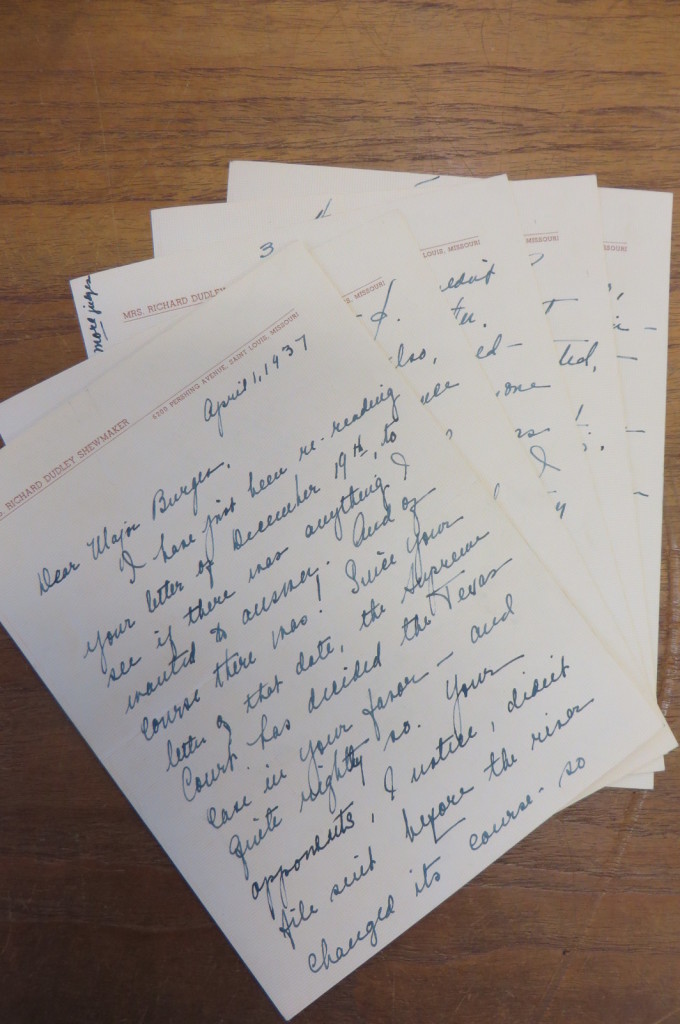 RICHARD DUDLEY SHEWMAKER
PERSHING AVENUE, SAINT LOUIS, MISSOURI
April 1, 1937
Dear Major Burges,
I have just been re-reading
your letter of December 19th, to
see if there was anything I
wanted to answer. And of
course there was! Since your
letter of that date, the Supreme
Court has decided the Texas
case in your favor — and
quite rightly so. Your
opponents, I notice, didn't
file suit before the river
changed its course - so
more judges
MRS. RICHARD DUDLEY
3
MISSOURI
LOUIS, MISSOURI
MISSOURI
one